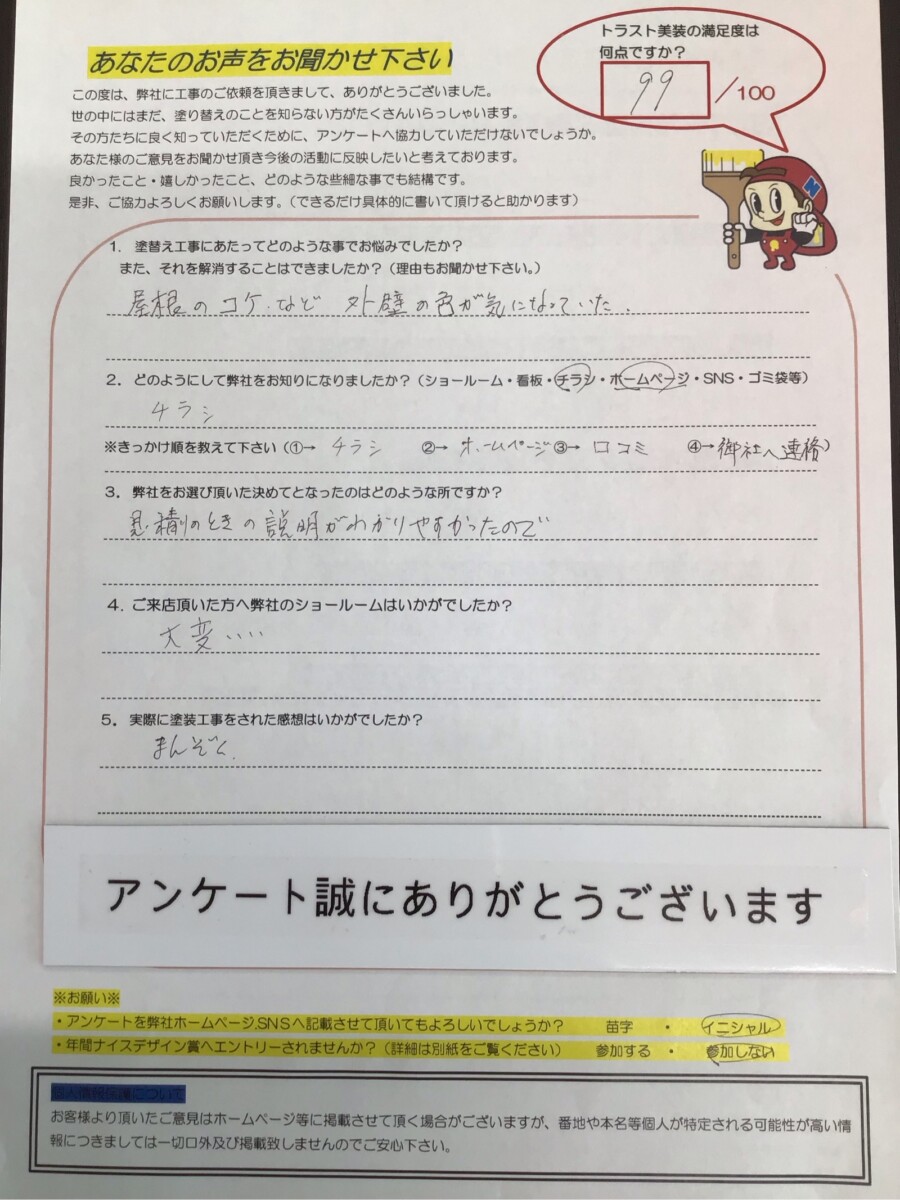 あなたのお声をお聞かせ下さい
トラスト美装の満足度は
何点ですか?
99/100
この度は、弊社に工事のご依頼を頂きまして、ありがとうございました。
世の中にはまだ、塗り替えのことを知らない方がたくさんいらっしゃいます。
その方たちに良く知っていただくために、アンケートへ協力していただけないでしょうか。
あなた様のご意見をお聞かせ頂き今後の活動に反映したいと考えております。
良かったこと・嬉しかったこと、どのような些細な事でも結構です。
是非、ご協力よろしくお願いします。(できるだけ具体的に書いて頂けると助かります)
N
1. 塗替え工事にあたってどのような事でお悩みでしたか?
また、それを解消することはできましたか?(理由もお聞かせ下さい。)
屋根のコケなど 外壁の色が気になっていた.
2. どのようにして弊社をお知りになりましたか?(ショールーム・看板・チラシ・ホームページ・SNS・ゴミ袋等)
チラシ
※きっかけ順を教えて下さい(①→ チラシ ②→ ホームページ ③→ 口コミ ④→ 御社へ連絡)
3. 弊社をお選び頂いた決めてとなったのはどのような所ですか?
見積りのときの説明がわかりやすかったので
4. ご来店頂いた方へ弊社のショールームはいかがでしたか?
大変いい
5. 実際に塗装工事をされた感想はいかがでしたか?
まんぞく.
アンケート誠にありがとうございます
※お願い※
・アンケートを弊社ホームページ.SNSへ記載させて頂いてもよろしいでしょうか? 苗字 ・ イニシャル
・年間ナイスデザイン賞へエントリーされませんか?(詳細は別紙をご覧ください) 参加する ・ 参加しない
個人情報保護について
お客様より頂いたご意見はホームページ等に掲載させて頂く場合がございますが、番地や本名等個人が特定される可能性が高い情
報につきましては一切口外及び掲載致しませんのでご安心下さい。